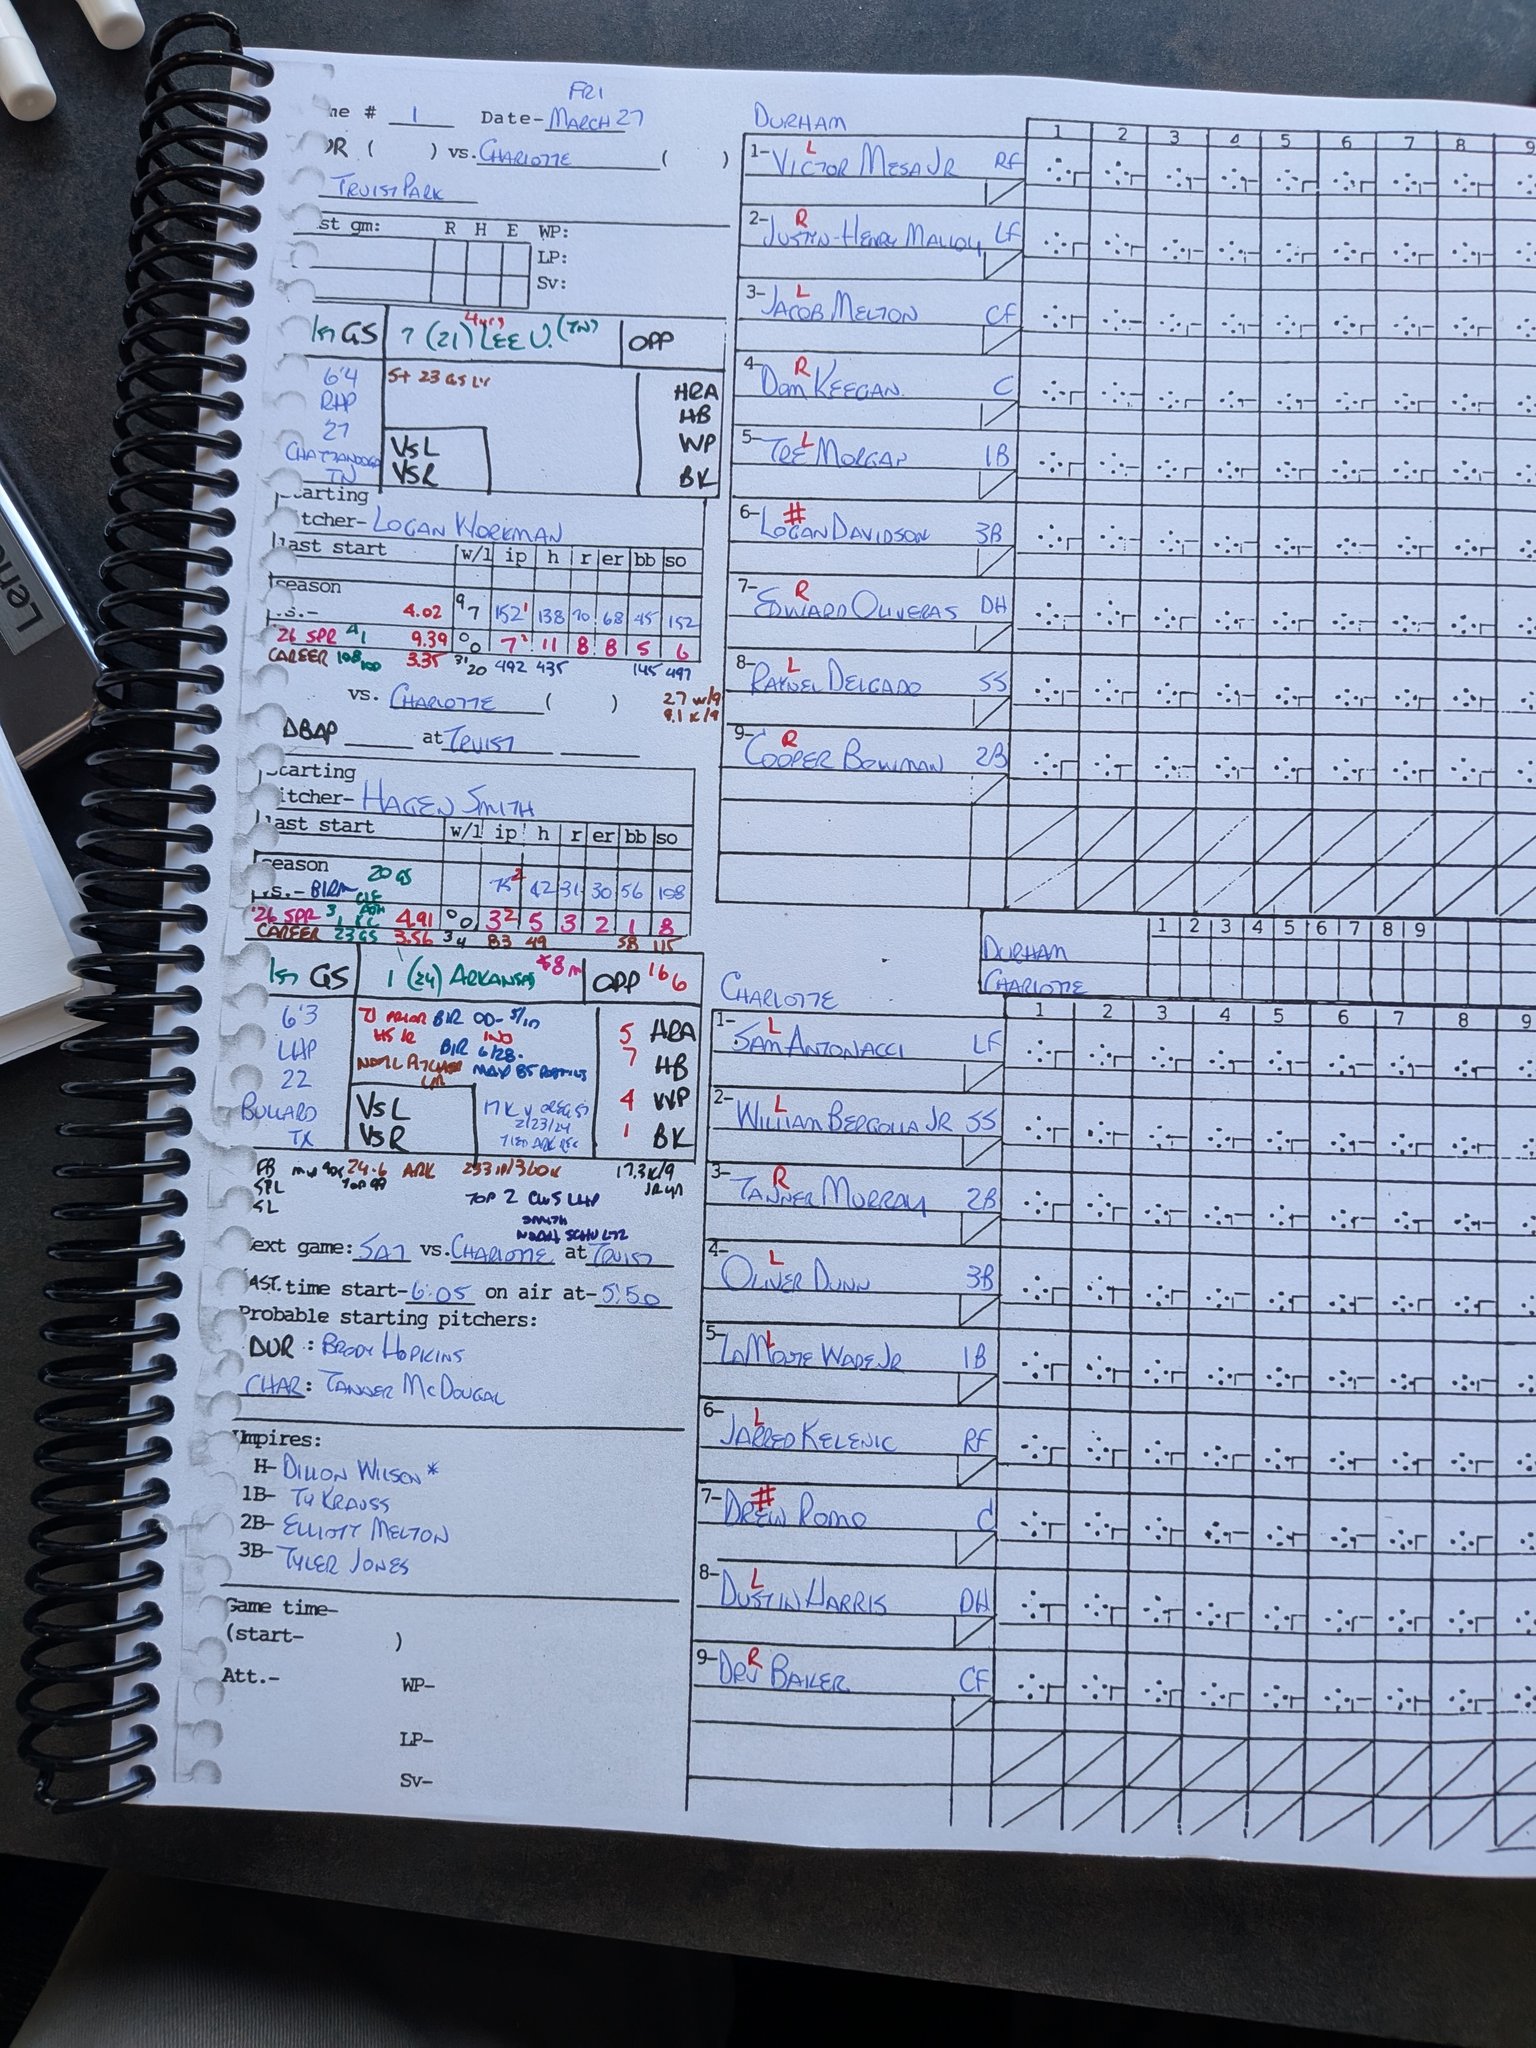 FRI
ne # 1 Date- MARCH 27
OR ( ) vs. CHARLOTTE ( )
TRUIST PARK
st gm: R H E WP:
LP:
Sv:
1st GS 7 (21) 4 yrs LEE U. (TN) OPP
6'4
RHP
27
CHATTANOOGA
TN
HRA
HB
WP
BK
VsL
VSR
tarting
tcher- LOGAN WORKMAN
last start w/l ip h r er bb so
season
.s.- 4.02 9 7 152 1 138 70 68 45 152
'26 SPR 4/1 9.39 0 0 7 1 11 8 8 5 6
CAREER 108/100 3.35 31 20 492 435 145 497
2.7 w/9
9.1 K/9
vs. CHARLOTTE ( )
DBAP at TRUIST
tarting
itcher- HAGEN SMITH
last start w/l ip h r er bb so
season 20 GS
.s.- BIRM 75 2 42 31 30 56 108
'26 SPR 4.91 0 0 3 2 5 3 2 1 8
CAREER 23 GS 3.56 3 4 83 49 58 115
1st GS 1 (24) ARKANSAS OPP 166
6'3
LHP
22
BULLARD
TX
TJ PRIOR
HS JR
BIR 6/28
5 HRA
7 HB
4 WP
1 BK
VsL
VSR
2/23/24
FB
SPL
SL
ARK
17.3 K/9
TOP 2 CWS LHP
SMITH
NOAH SCHULTZ
ext game: SAT vs. CHARLOTTE at TRUIST
AST. time start- 6:05 on air at- 5:50
Probable starting pitchers:
DUR : BRODY HOPKINS
CHAR: TANNER MCDOUGAL
Umpires:
H- DILLON WILSON *
1B- TY KRAUSS
2B- ELLIOTT MELTON
3B- TYLER JONES
Game time-
(start- )
Att.- WP-
LP-
Sv-
DURHAM
1 2 3 4 5 6 7 8 9
1- VICTOR MESA JR L RF
2- JUSTIN-HENRY MALLOY R LF
3- JACOB MELTON L CF
4- DOM KEEGAN R C
5- TRE MORGAN L 1B
6- LOGAN DAVIDSON # 3B
7- EDWARD OLIVERAS R DH
8- RAYNEL DELGADO L SS
9- COOPER BOWMAN R 2B
1 2 3 4 5 6 7 8 9
DURHAM
CHARLOTTE
CHARLOTTE
1 2 3 4 5 6 7 8 9
1- SAM ANTONACCI L LF
2- WILLIAM BERGOLLA JR L SS
3- TANNER MURRAY R 2B
4- OLIVER DUNN L 3B
5- LAMONTE WADE JR L 1B
6- JARRED KELENIC L RF
7- DREW ROMO # C
8- DUSTIN HARRIS L DH
9- DRU BAKER R CF
Leno